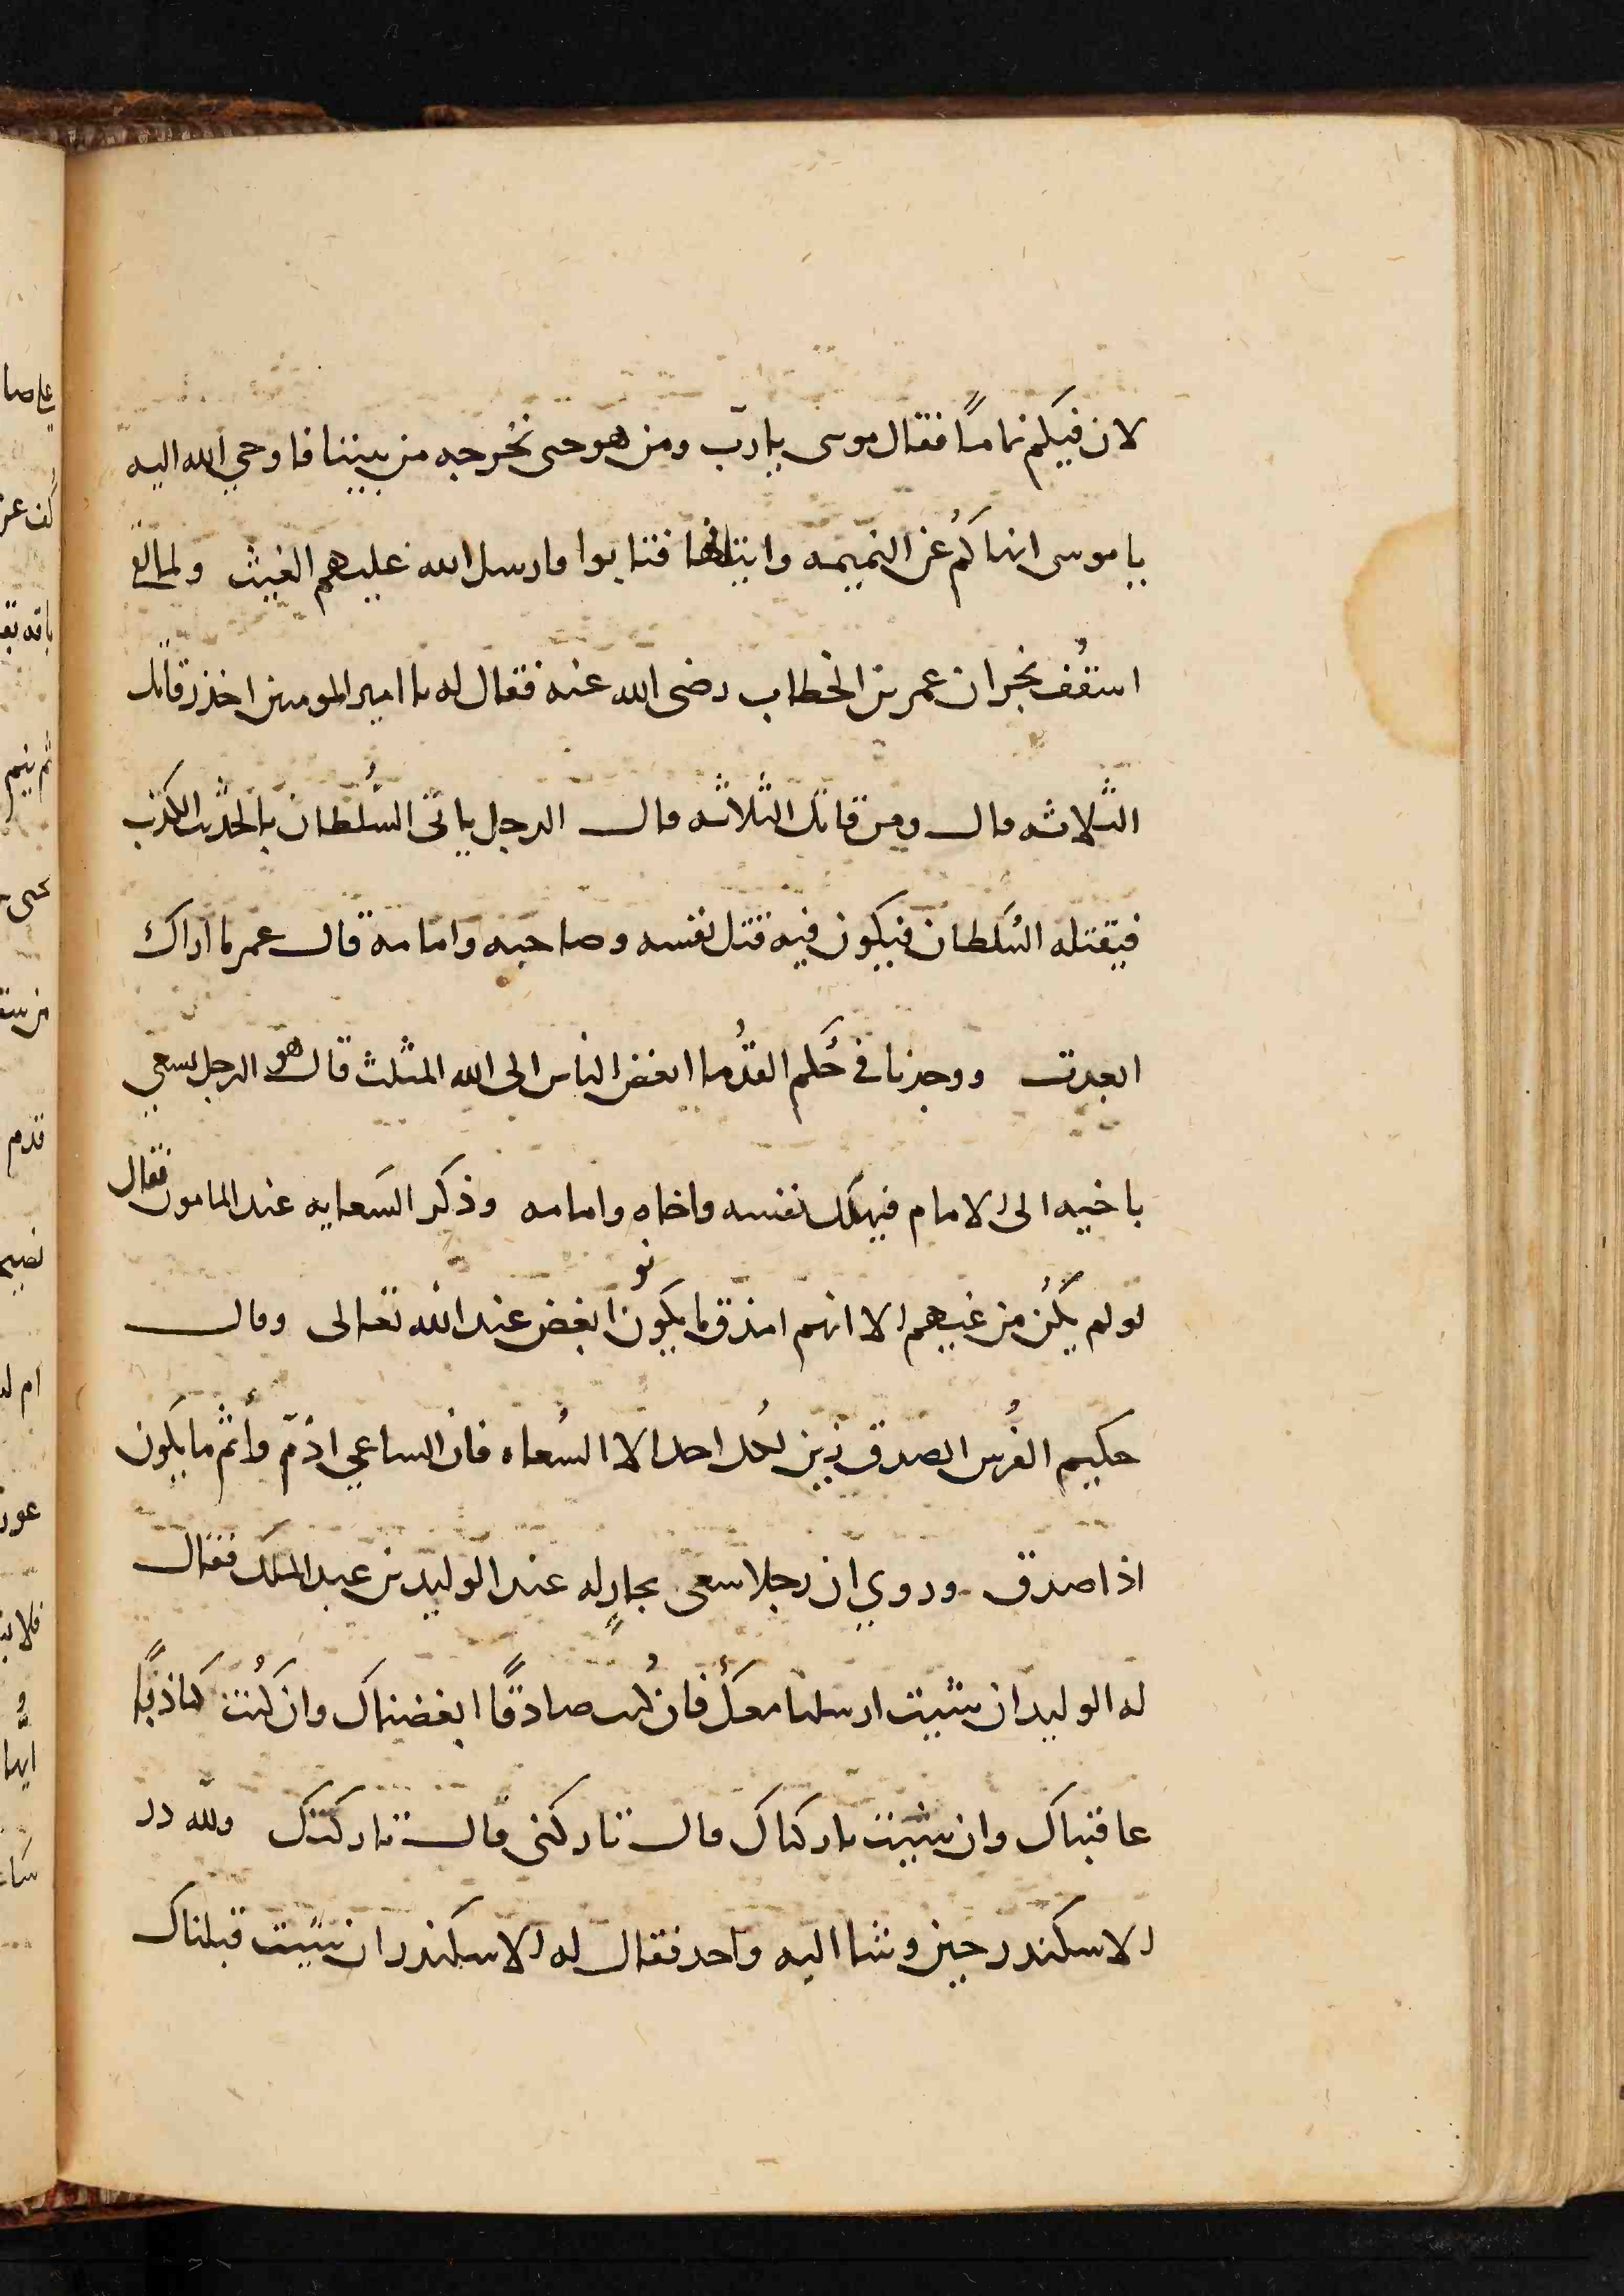 لان فيكم نماماً فقال موسى يا ربّ ومن هو حتى نخرجه من بيننا فاوحي الله اليه
يا موسى انهاكم عن النميمه وابتدانها فتابوا فارسل الله عليهم الغيث ولما لقي
اسقُف نجران عمر بن الخطاب رضى الله عنه فقال له يا امير المومنين احذر قاتل
الثلاثه قال ومن قاتل الثلاثه قال الرجل ياتى السُلطان بالحديث الكذب
فيقتله السُلطان فيكون فيه قتل نفسه وصاحبه وامامه قال عمر ما اراك
ابعدت ووجدنا في حكم القدُما ابغض الناس الى الله المثلث قال هو الرجل يسعي
باخيه الى الامام فيهلك نفسه واخاه وامامه وذكر السعايه عند المامون فقال
لو لم يكُن من غيبهم الا انهم اصدق ما يكونون ابغض عند الله تعالى وقال
حكيم الفُرس الصدق زين لكل احد الا السُعاه فان الساعي اذمّ وأثم ما يكون
اذا صدق وروي ان رجلا سعى بجارٍ له عند الوليد بن عبد الملك فقال
له الوليد ان شيت ارسلنا معك فان كُنت صادقاً ابغضناك وان كُنت كاذباً
عاقبناك وان شيت تاركناك قال تاركنى قال تاركتك ولله در
الاسكندر حين وشا اليه واحد فقال له الاسكندر ان شيت قبلناك